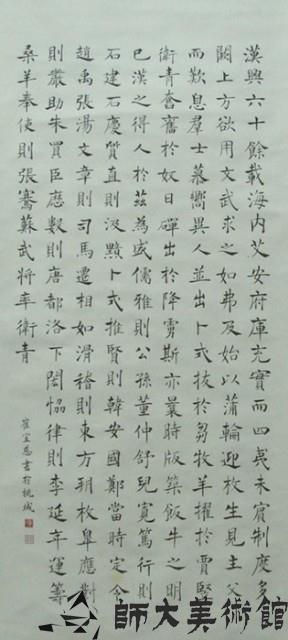 漢興六十餘載海內艾安府庫充實而四夷未賓制度多
闕上方欲用文武求之如弗及始以蒲輪迎枚生見主父
而歎息羣士慕嚮異人並出卜式拔於芻牧羊擢於賈堅
衛青奮於奴日磾出於降虜斯亦曩時版築飯牛之明
已漢之得人於茲為盛儒雅則公孫董仲舒兒寬篤行則
石建石慶質直則汲黯卜式推賢則韓安國鄭當時定令
趙禹張湯文章則司馬遷相如滑稽則東方朔枚皋應對
則嚴助朱買臣應數則唐都洛下閎協律則李延年運籌
桑羊奉使則張騫蘇武將率衛青
崔宜恩書於桃城
師大美術館